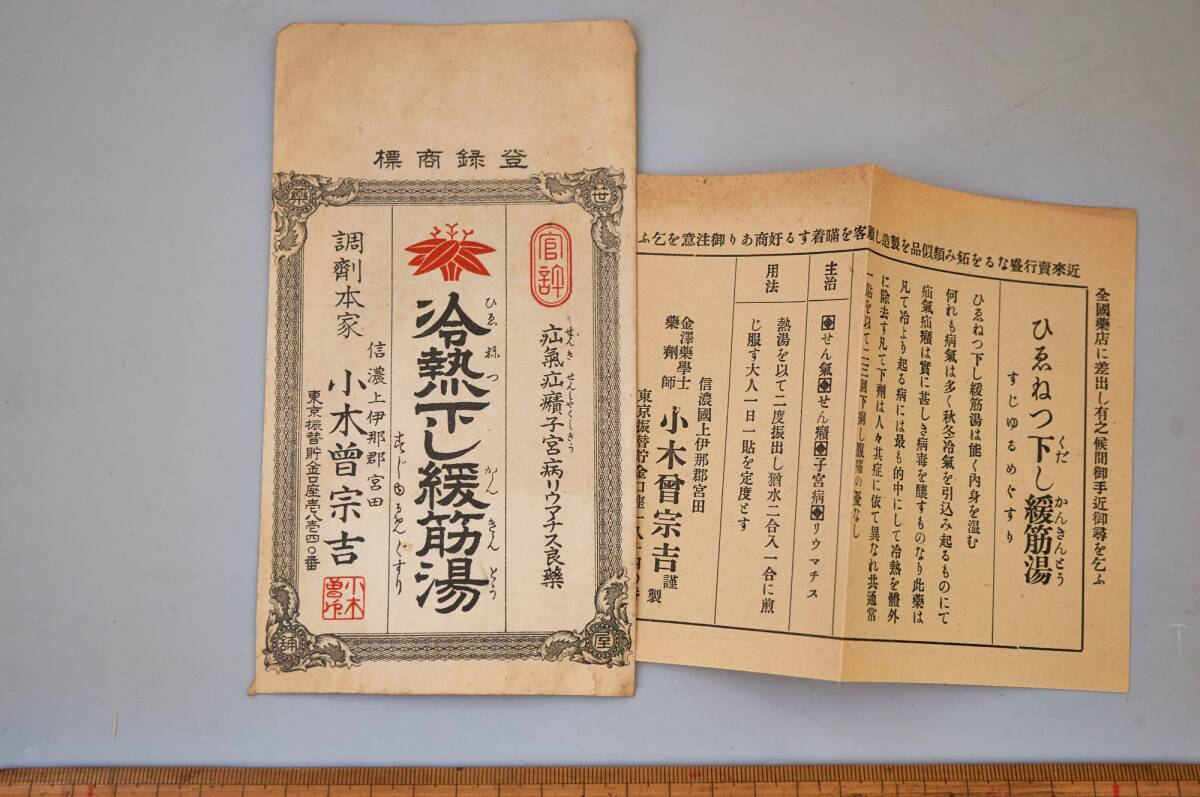 登録商標
笹
屋
薬
舖
官許
疝氣疝癪子宮病リウマチス良藥
せんき せんしやく しきう
冷熱下し緩筋湯
ひゑ ねつ かん きん とう
すじゆるめぐすり
調劑本家
信濃上伊那郡宮田
小木曾宗吉
東京振替貯金口座壱八壱四〇番
小木曾印
近來賣行盛なるを妬み類似品を製造し顧客を瞞着する奸商あり御注意を乞ふ
全國藥店に差出し有之候間御手近御尋を乞ふ
ひゑねつ下し緩筋湯
くだ かんきんとう
すじゆるめぐすり
ひゑねつ下し緩筋湯は能く內身を温む
何れも病氣は多く秋冬冷氣を引込み起るものにて
疝氣疝癪は實に甚しき病毒を釀すものなり此藥は
凡て冷より起る病には最も的中にして冷熱を體外
に除去す凡て下劑は人々其症に依て異なれ共通常
一貼を以て二三回下痢し腹痛の憂なし
主治
せん氣 せん癪 子宮病 リウマチス
用法
熱湯を以て二度振出し猶水二合入一合に煎
じ服す大人一日一貼を定度とす
信濃國上伊那郡宮田
金澤藥學士
藥劑師
小木曾宗吉 謹製
東京振替貯金口座一八一四〇番